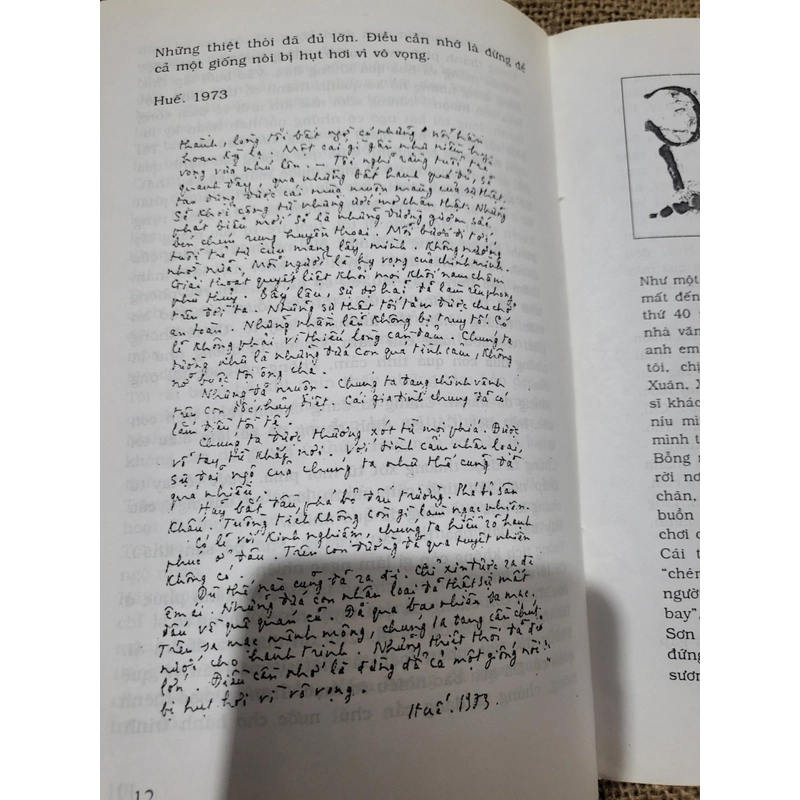 Những thiệt thòi đã đủ lớn. Điều cần nhớ là đừng để
cả một giống nòi bị hụt hơi vì vô vọng.
Huế. 1973
thành, lòng tôi bất ngờ có những nỗi hân
hoan kỳ lạ. Một cái gì gần như niềm hy
vọng vừa nhú lên. - Tôi nghĩ rằng tuổi trẻ
quanh đây, qua những bất hạnh quá đủ, sẽ
tạo dựng được cái mùa muôn màng của sự thật.
Sẽ khởi công từ những ước mơ chân thật. Những
phát biểu mới sẽ là những đường gươm sắc
bén chém rụng huyền thoại. Mỗi bước đi tới,
tuổi trẻ tự cưu mang lấy mình. Không nương
nhờ nữa. Mỗi người là hy vọng của chính mình.
Giải thoát quyết liệt khỏi mọi khối nam châm
phù thủy. Bấy lâu, sự sợ hãi đã làm rêu phong
trên đời ta. Những sự thật tồi tàn được che chở
an toàn. Những nhầm lẫn không bị truy tố. Có
lẽ không phải vì thiếu lòng can đảm. Chúng ta
dường như là những đứa con quá tình cảm, không
nỡ buộc tội ông cha.
Nhưng đã muộn. Chúng ta đang chênh vênh
trên con dốc hủy diệt. Cái gia đình chung đã có
lắm điều tồi tệ.
Chúng ta được thương xót từ mọi phía. Được
vỗ tay từ khắp nơi. Với tình cảm nhân loại,
sự đãi ngộ của chúng ta như thế cũng đã
quá nhiều.
Hãy bắt đầu, phá bỏ đấu trường. Phá bỏ sân
khấu. Tuồng tích không còn gì làm ngạc nhiên.
Có lẽ với kinh nghiệm, chúng ta hiểu rõ hạnh
phúc ở đâu. Trên con đường đã qua tuyệt nhiên
không có.
Dù thế nào cũng đã ra đi. Chỉ xin được ra đi
êm ái. Những đứa con nhân loại đã thất sự mất
dấu về quê quán cũ. Đã qua bao nhiêu sa mạc.
Trên sa mạc mênh mông, chúng ta đang cần chút
nước cho hành trình. Những thiệt thòi đã đủ
lớn. Điều cần nhớ là đừng để cả một giống nòi
bị hụt hơi vì vô vọng.
Huế. 1973.
12
Như một
mất đến
thứ 40
nhà văn
anh em
tôi, chị
Xuân, X
sĩ khác
níu mì
mình t
Bỗng
rời nơ
chân,
buồn
chơi c
Cái t
"chên
người
bay",
Sơn
đứng
sươn